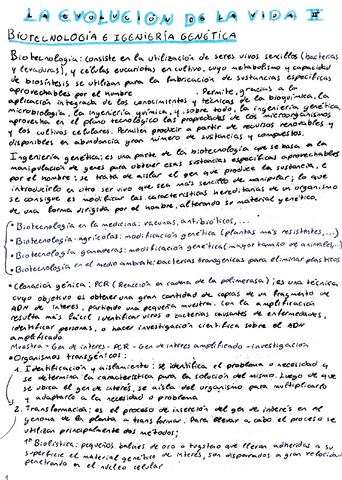 LA EVOLUCIÓN DE LA VIDA II
BIOTECNOLOGÍA E IGENIERÍA GENÉTICA
Biotecnología: consiste en la utilización de seres vivos sencillos (bacterias
y levaduras), y células eucariotas en cultivo, cuyo metabolismo y capacidad
de biosíntesis se utilizan para la fabricación de sustancias específicas
aprovechables por el hombre . Permite, gracias a la
aplicación integrada de los conocimientos y técnicas de la bioquímica, la
microbiología, la ingeniería química, y, sobre todo, la ingeniería genética,
aprovecha en el plano tecnológico las propiedades de los microorganismos
y los cultivos celulares. Permiten producir a partir de recursos renovables y
disponibles en abundancia gran número de sustancias y compuestos.
Ingeniería genética: es una parte de la biotecnología que se basa a la
manipulación de genes para obtener esas sustancias específicas aprovechables
por el hombre: se trata de aislar el gen que produce la sustancia, e
introducirlo en otro ser vivo que sea más sencillo de manipular; lo que
se consigue es modificar las características hereditarias de un organismo
de una forma dirigida por el hombre, alterando su material genético.
• Biotecnología en la medicina: vacunas, antibióticos,...
• Biotecnología-agrícolas: modificación genética (plantas más resistentes,...)
• Biotecnología ganaderas: modificación genética (mayor tamaño de animales,...)
• Biotecnología en el medio ambiente: bacterias transgénicas para eliminar plásticos
• Clonación génica: PCR (Reacción en cadena de la polimerasa): es una técnica
cuyo objetivo es obtener una gran cantidad de copias de un fragmento de
ADN de interés, partiendo una pequeña muestra. Con la amplificación
resulta más fácil identificar virus o bacterias causantes de enfermedades,
identificar personas, o hacer investigación científica sobre el ADN
amplificado
Muestra - Gen de interés - PCR - Gen de interés amplificado - investigación
• Organismos transgénicos:
1. Identificación y aislamiento: se identifica el problema o necesidad y
se determina la característica para la solución del mismo. Luego de que
se ubica el gen de interés, se aísla del organismo para multiplicarlo
y adaptarlo a la necesidad o problema
2. Transformación: es el proceso de inserción del gen de interés en el
genoma de la planta a transformar. Para llevar a cabo el proceso se
utilizan principalmente dos métodos:
1º Biolística: pequeños balines de oro o tugsteno que llevan adheridas a su
superficie el material genético de interés, son disparados a gran velocidad
penetrando en el núcleo celular
1